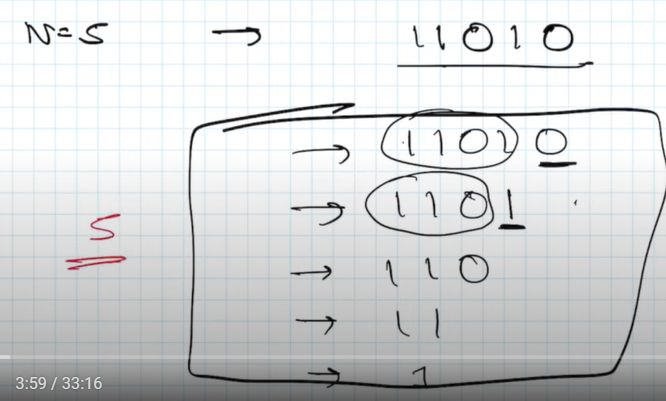 N=5 → 11010
→ 11010
→ 1101
5
→ 110
→ 11
→ 1
3:59 / 33:16